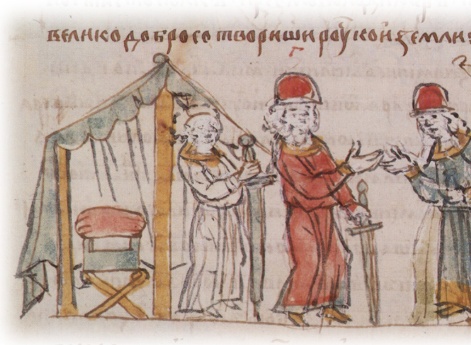 велико добро сотвориши роускои земли
г